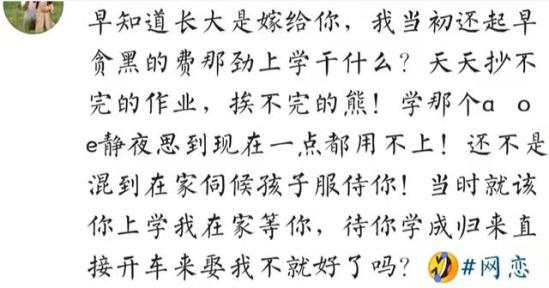 早知道长大是嫁给你，我当初还起早
贪黑的费那劲上学干什么？天天抄不
完的作业，挨不完的熊！学那个a o
e静夜思到现在一点都用不上！还不是
混到在家伺候孩子服侍你！当时就该
你上学我在家等你，待你学成归来直
接开车来娶我不就好了吗？🤣#网恋